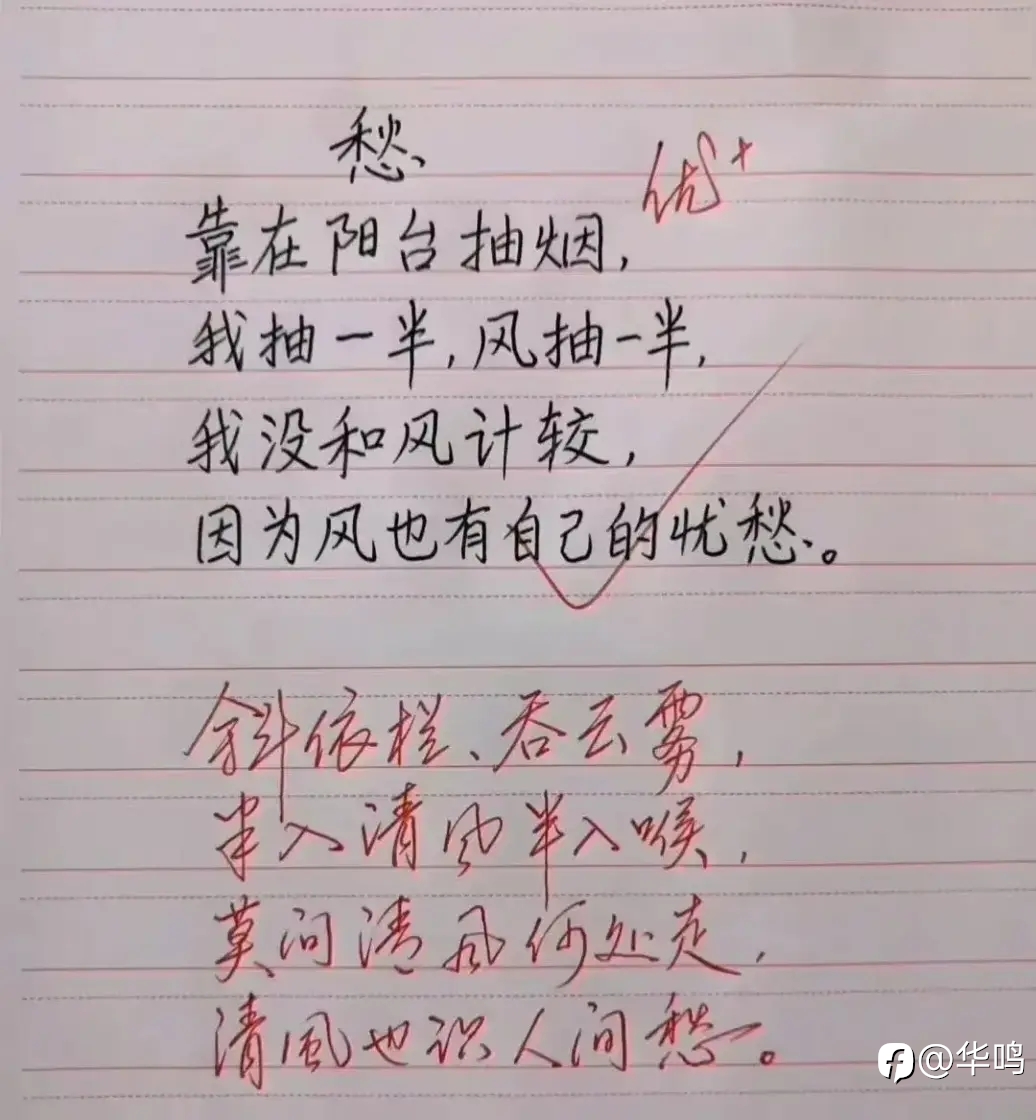 愁
优+
靠在阳台抽烟,
我抽一半,风抽一半,
我没和风计较,
因为风也有自己的忧愁。
斜依栏、吞云雾,
半入清风半入喉,
莫问清风何处走,
清風也识人间愁。
@华鸣